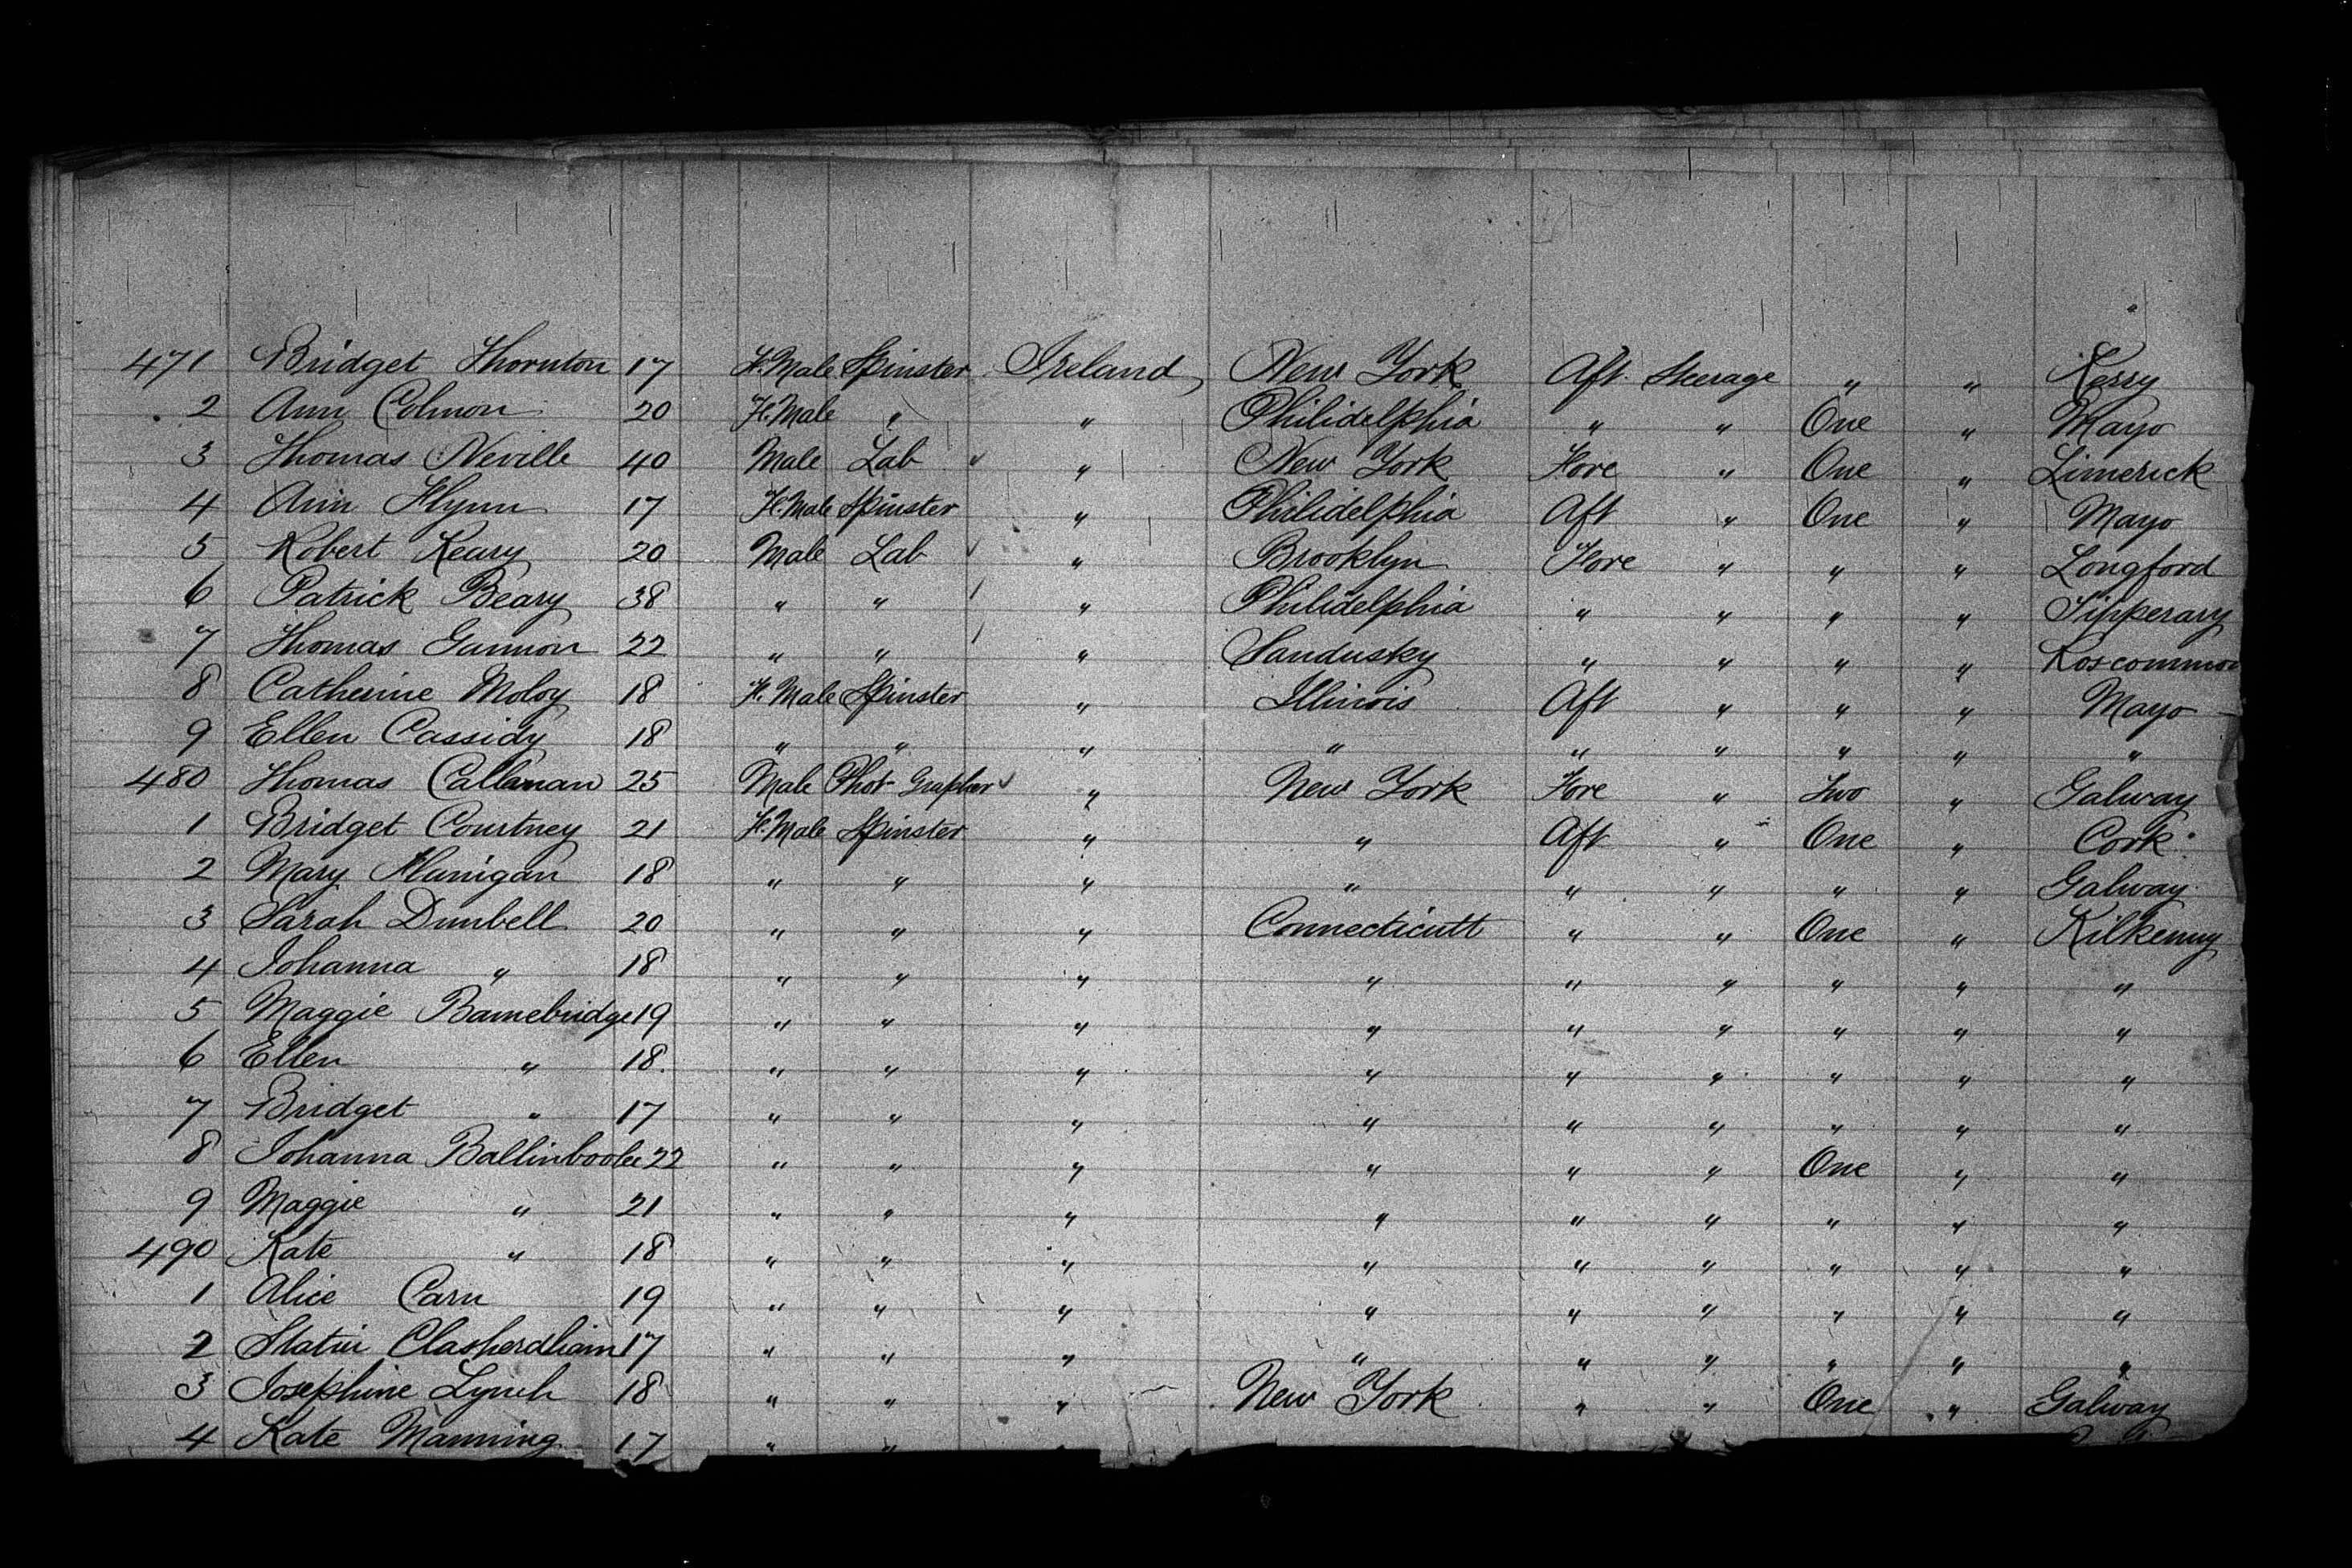 471 Bridget Thornton 17 F.Male Spinster Ireland New York Aft Steerage " " Kerry
2 Ann Colmon 20 F.Male " " Philidelphia " " One " Mayo
3 Thomas Neville 40 Male Lab " New York Fore " One " Limerick
4 Ann Flynn 17 F.Male Spinster " Philidelphia Aft " One " Mayo
5 Robert Keary 20 Male Lab " Brooklyn Fore " " " Longford
6 Patrick Beary 38 " " " Philidelphia " " " " Tipperary
7 Thomas Gannon 22 " " " Sandusky " " " " Roscommon
8 Catherine Moloy 18 F.Male Spinster " Illinois Aft " " " Mayo
9 Ellen Cassidy 18 " " " " " " " " "
480 Thomas Callanan 25 Male Phot Grapher " New York Fore " Two " Galway
1 Bridget Courtney 21 F.Male Spinster " " Aft " One " Cork
2 Mary 18 " " " " " " " " Galway
3 Sarah Dunbell 20 " " " Connecticutt " " One " Kilkenny
4 Johanna " 18 " " " " " " " " "
5 Maggie Barnebridge 19 " " " " " " " " "
6 Ellen " 18 " " " " " " " " "
7 Bridget " 17 " " " " " " " " "
8 Johanna Ballinboolee 22 " " " " " " One " "
9 Maggie " 21 " " " " " " " " "
490 Kate " 18 " " " " " " " " "
1 Alice Carn 19 " " " " " " " " "
2 17 " " " " " " " " "
3 Josephine Lynch 18 " " " New York " " One " Galway
4 Kate Manning 17 " " "